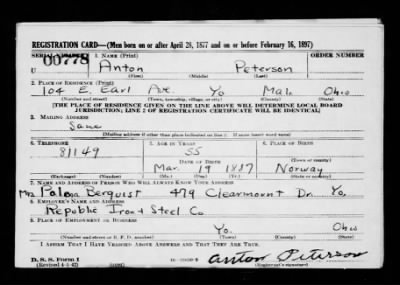 REGISTRATION CARD—(Men born on or after April 28, 1877 and on or before February 16, 1897)
SERIAL NUMBER 1. NAME (Print) ORDER NUMBER
U 00778 Anton Peterson
(First) (Middle) (Last)
2. PLACE OF RESIDENCE (Print)
104 E. Earl Ave. Yo Mah. Ohio
(Number and street) (Town, township, village, or city) (County) (State)
[THE PLACE OF RESIDENCE GIVEN ON THE LINE ABOVE WILL DETERMINE LOCAL BOARD
JURISDICTION; LINE 2 OF REGISTRATION CERTIFICATE WILL BE IDENTICAL]
3. MAILING ADDRESS
Same
[Mailing address if other than place indicated on line 2. If same insert word same]
4. TELEPHONE 5. AGE IN YEARS 6. PLACE OF BIRTH
81149 55
DATE OF BIRTH (Town or county)
Mar. 19 1887 Norway
(Mo.) (Day) (Yr.) (State or country)
7. NAME AND ADDRESS OF PERSON WHO WILL ALWAYS KNOW YOUR ADDRESS
Mrs Berquist 479 Clearmount Dr. Yo.
8. EMPLOYER'S NAME AND ADDRESS
Republic Iron & Steel Co
9. PLACE OF EMPLOYMENT OR BUSINESS
Yo. Ohio
(Number and street or R. F. D. number) (Town) (County) (State)
I AFFIRM THAT I HAVE VERIFIED ABOVE ANSWERS AND THAT THEY ARE TRUE.
D. S. S. Form 1
(Revised 4-1-42) Anton Peterson
(Registrant's signature)